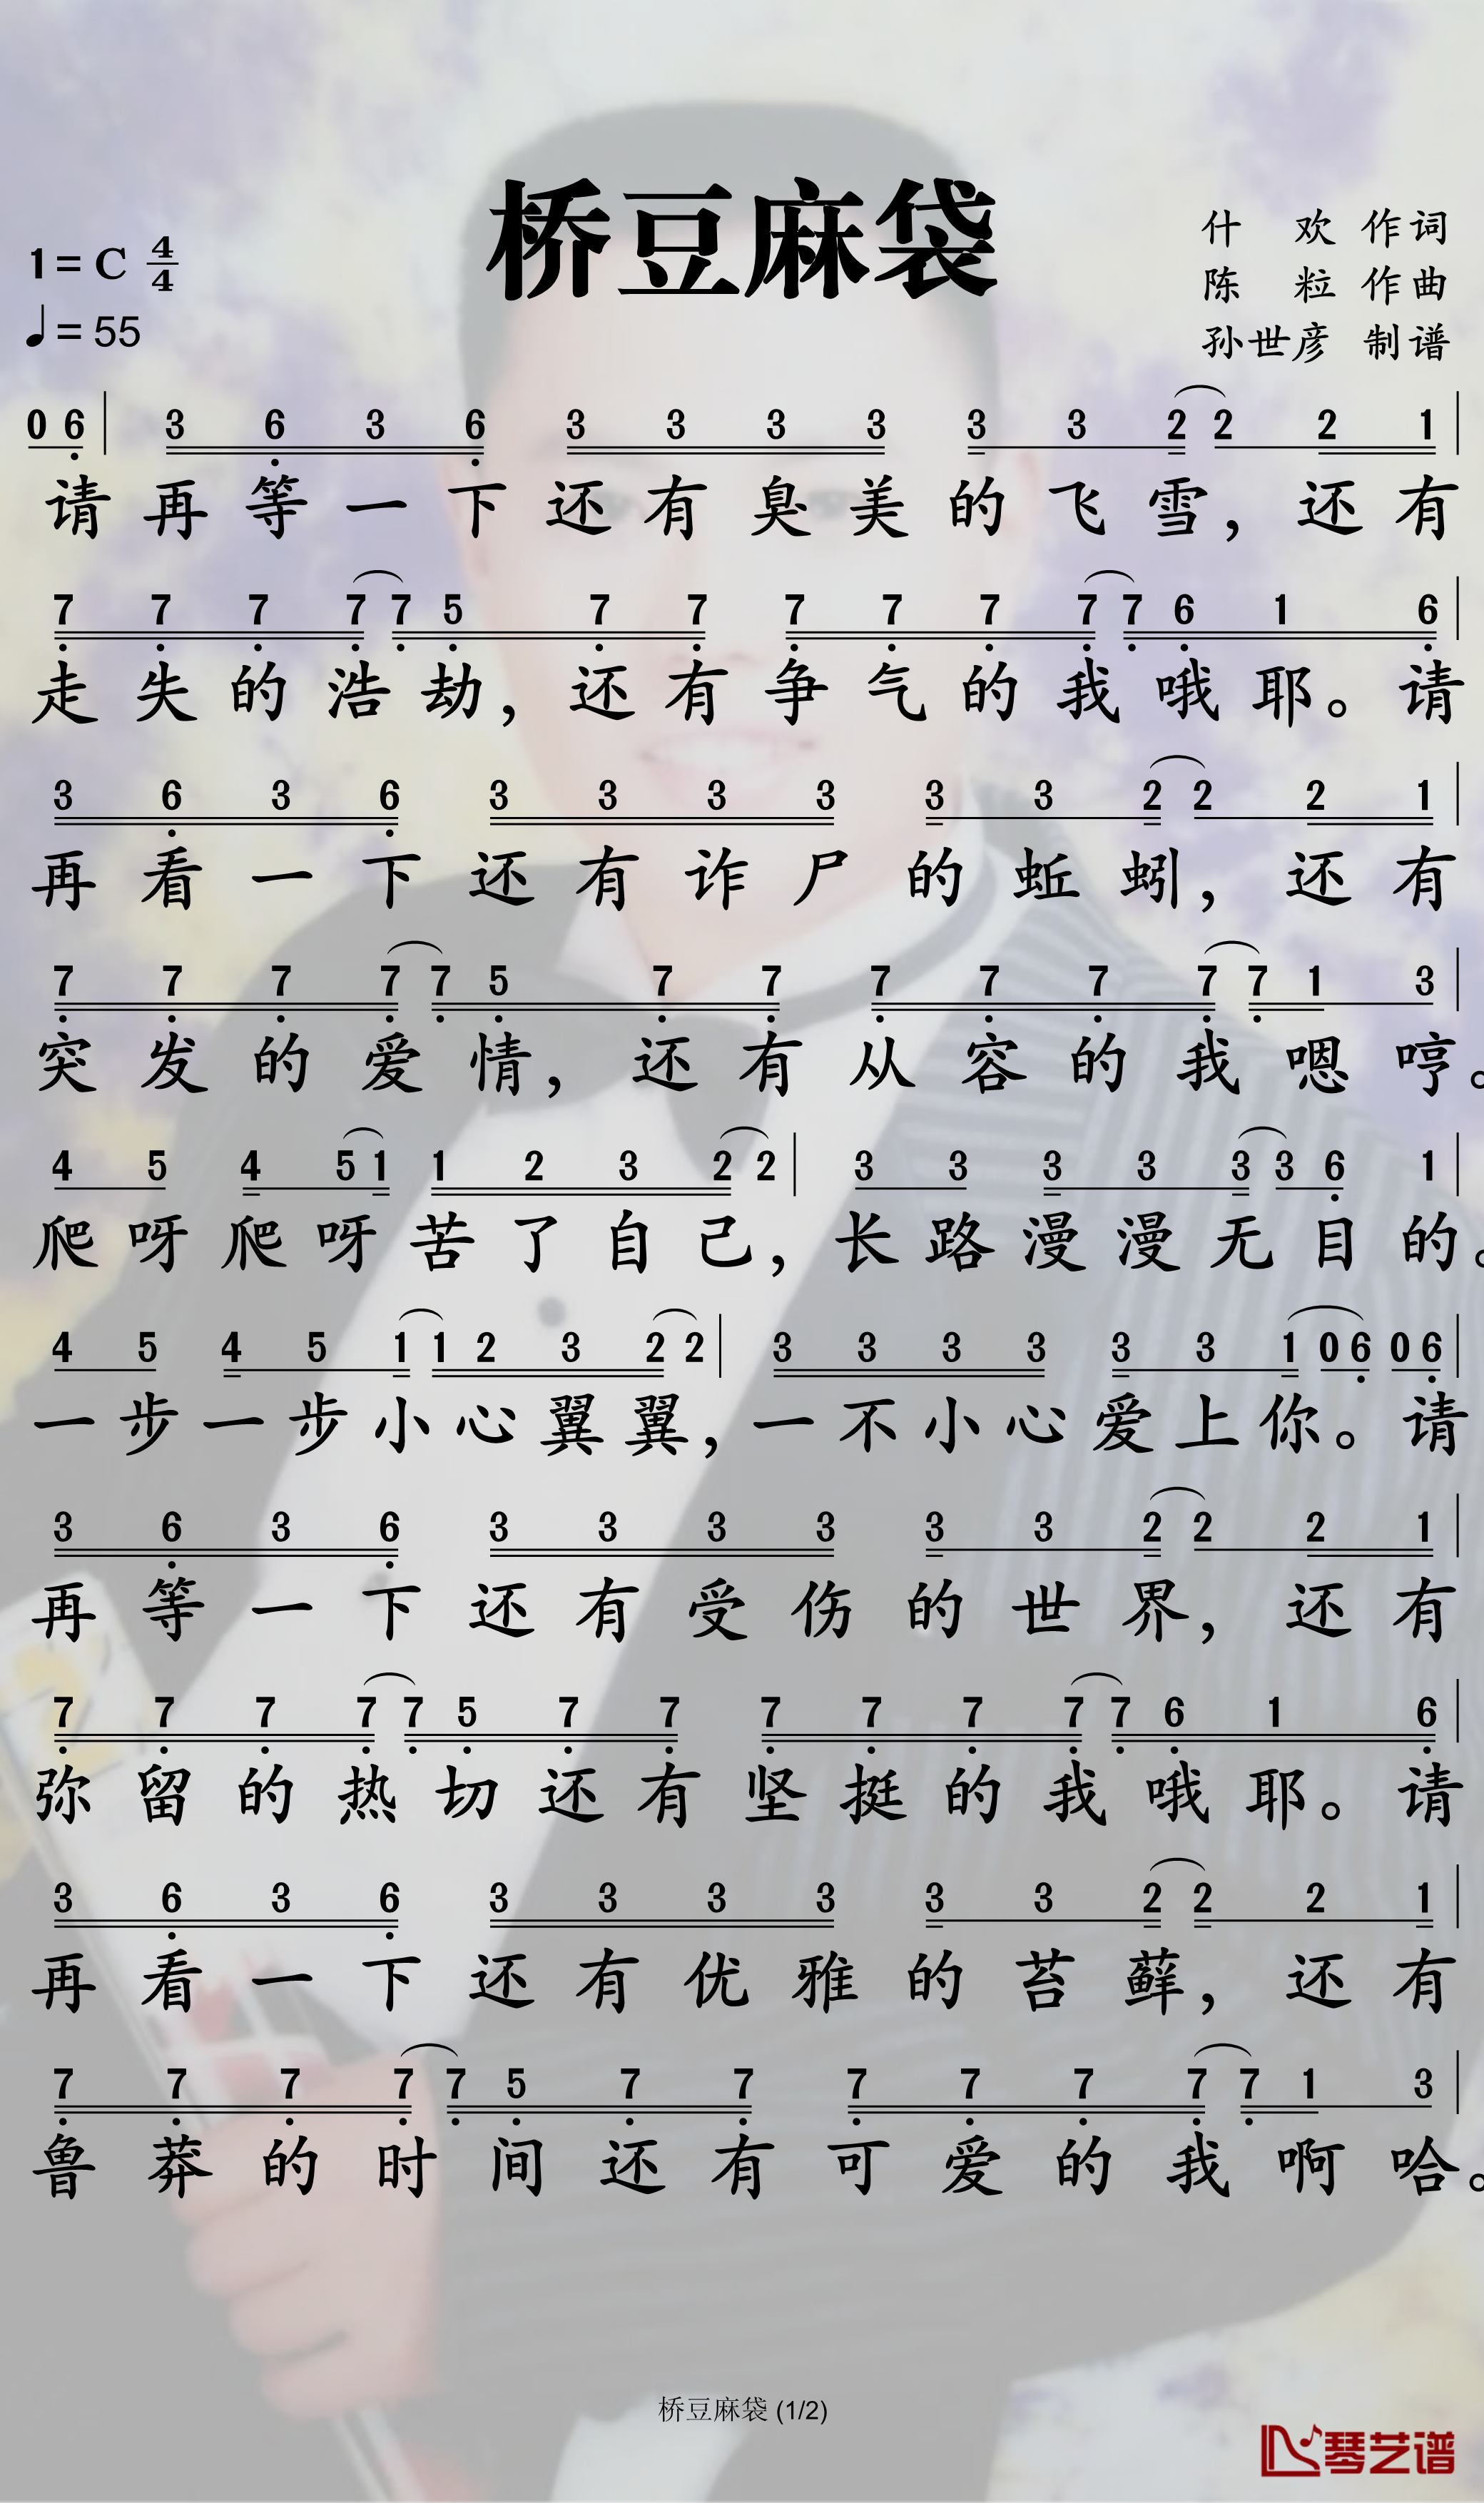 桥豆麻袋
1=C 4/4
♩=55
什 欢 作词
陈 粒 作曲
孙世彦 制谱
0 6 | 3 6 3 6 3 3 3 3 3 3 2 2 2 1 |
请 再 等 一 下 还 有 臭 美 的 飞 雪，还 有
7 7 7 7 7 5 7 7 7 7 7 7 7 6 1 6 |
走 失 的 浩 劫，还 有 争 气 的 我 哦 耶。请
3 6 3 6 3 3 3 3 3 3 2 2 2 1 |
再 看 一 下 还 有 诈 尸 的 蚯 蚓，还 有
7 7 7 7 7 5 7 7 7 7 7 7 7 1 3 |
突 发 的 爱 情，还 有 从 容 的 我 嗯 哼。
4 5 4 5 1 1 2 3 2 2 | 3 3 3 3 3 3 6 1 |
爬 呀 爬 呀 苦 了 自 己，长 路 漫 漫 无 目 的。
4 5 4 5 1 1 2 3 2 2 | 3 3 3 3 3 3 1 0 6 0 6 |
一 步 一 步 小 心 翼 翼，一 不 小 心 爱 上 你。请
3 6 3 6 3 3 3 3 3 3 2 2 2 1 |
再 等 一 下 还 有 受 伤 的 世 界，还 有
7 7 7 7 7 5 7 7 7 7 7 7 7 6 1 6 |
弥 留 的 热 切 还 有 坚 挺 的 我 哦 耶。请
3 6 3 6 3 3 3 3 3 3 2 2 2 1 |
再 看 一 下 还 有 优 雅 的 苔 藓，还 有
7 7 7 7 7 5 7 7 7 7 7 7 7 1 3 |
鲁 莽 的 时 间 还 有 可 爱 的 我 啊 哈。
桥豆麻袋 (1/2)
琴艺谱